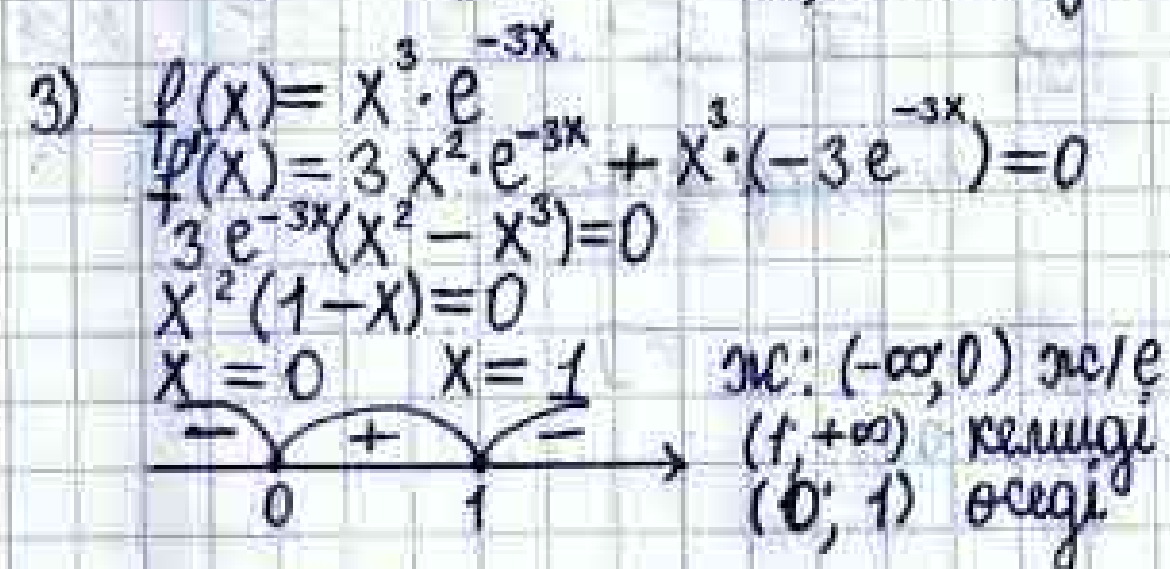 3) f(x) = x³ · e⁻³ˣ
f'(x) = 3x² · e⁻³ˣ + x³ · (-3e⁻³ˣ) = 0
3e⁻³ˣ(x² - x³) = 0
x²(1 - x) = 0
x = 0 x = 1
- + -
0 1
ж: (-∞; 0) ж/е
(1; +∞) кемиді
(0; 1) өседі